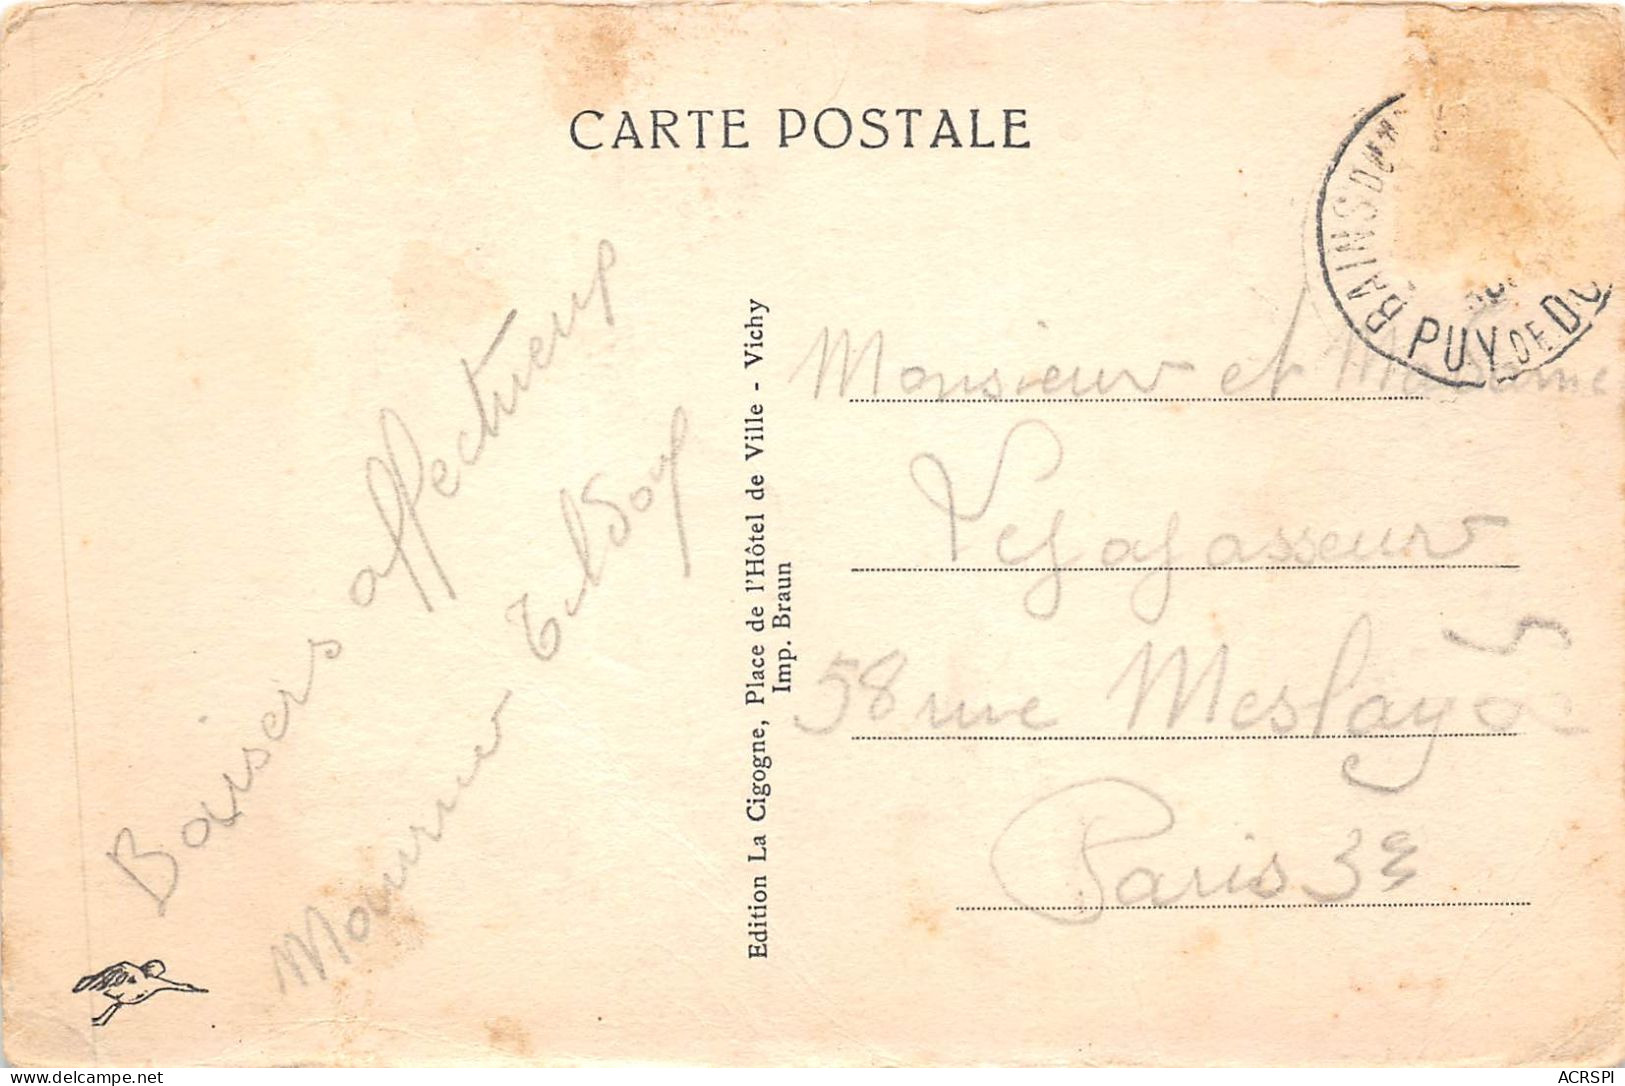 CARTE POSTALE
BAINS DU
PUY DE DO
Baisers affectueux
Edition La Cigogne, Place de l'Hôtel de Ville - Vichy
Imp. Braun
Monsieur et Madame
58 rue Meslay
Paris 3e
ACRSPI